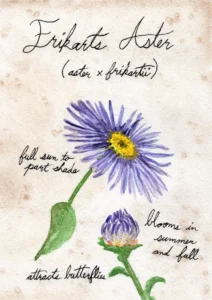 Frikarts Aster
(aster x frikartii)
full sun to
part shade
blooms in
summer
and fall
attracts butterflies